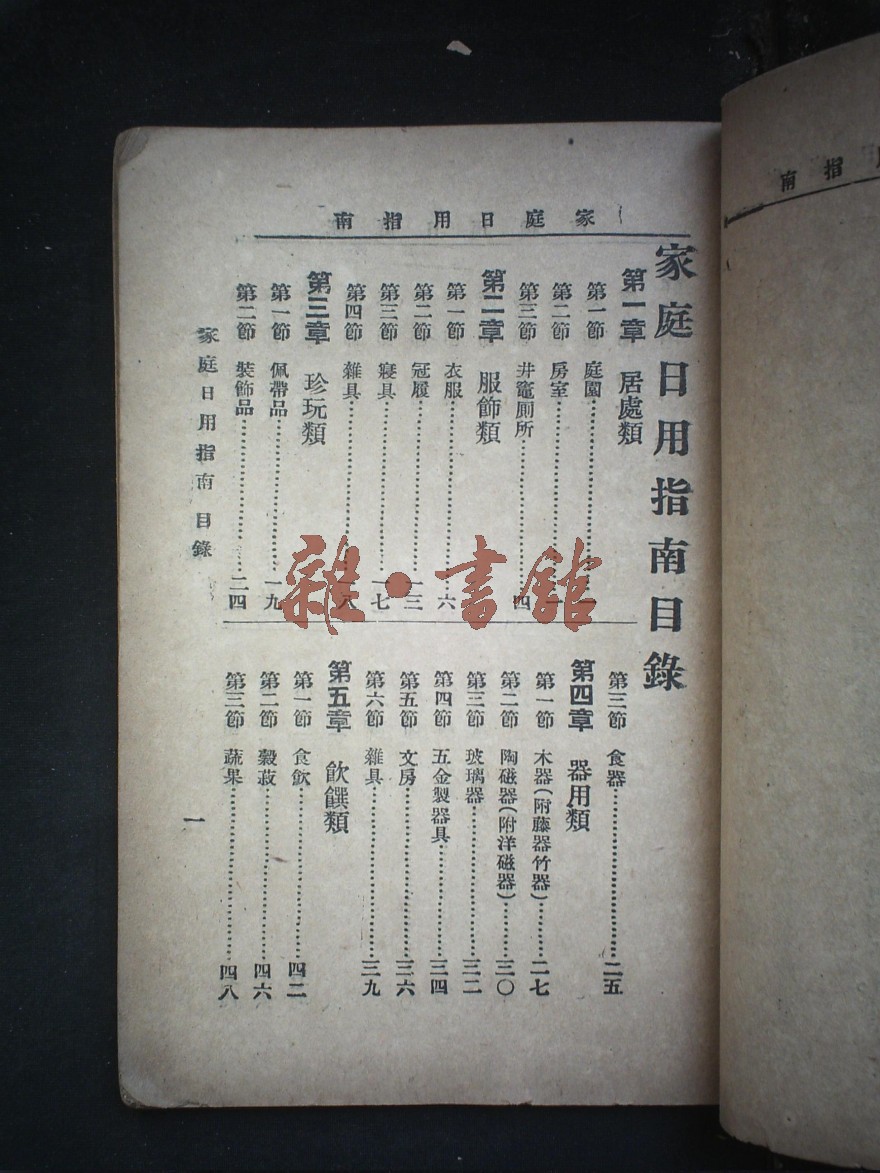 家庭日用指南
家庭日用指南目錄
第一章 居處類
第一節 庭園
第二節 房室
第三節 井竈厠所 四
第二章 服飾類
第一節 衣服 六
第二節 冠履 一三
第三節 寢具 一七
第四節 雜具 一八
第三章 珍玩類
第一節 佩帶品 一九
第二節 裝飾品 二四
第三節 食器 二五
第四章 器用類
第一節 木器(附藤器竹器) 二七
第二節 陶磁器(附洋磁器) 三〇
第三節 玻璃器 三二
第四節 五金製器具 三四
第五節 文房 三六
第六節 雜具 三九
第五章 飲饌類
第一節 食飲 四二
第二節 穀蔌 四六
第三節 蔬果 四八
家庭日用指南 目錄
一
雜·書館
指南